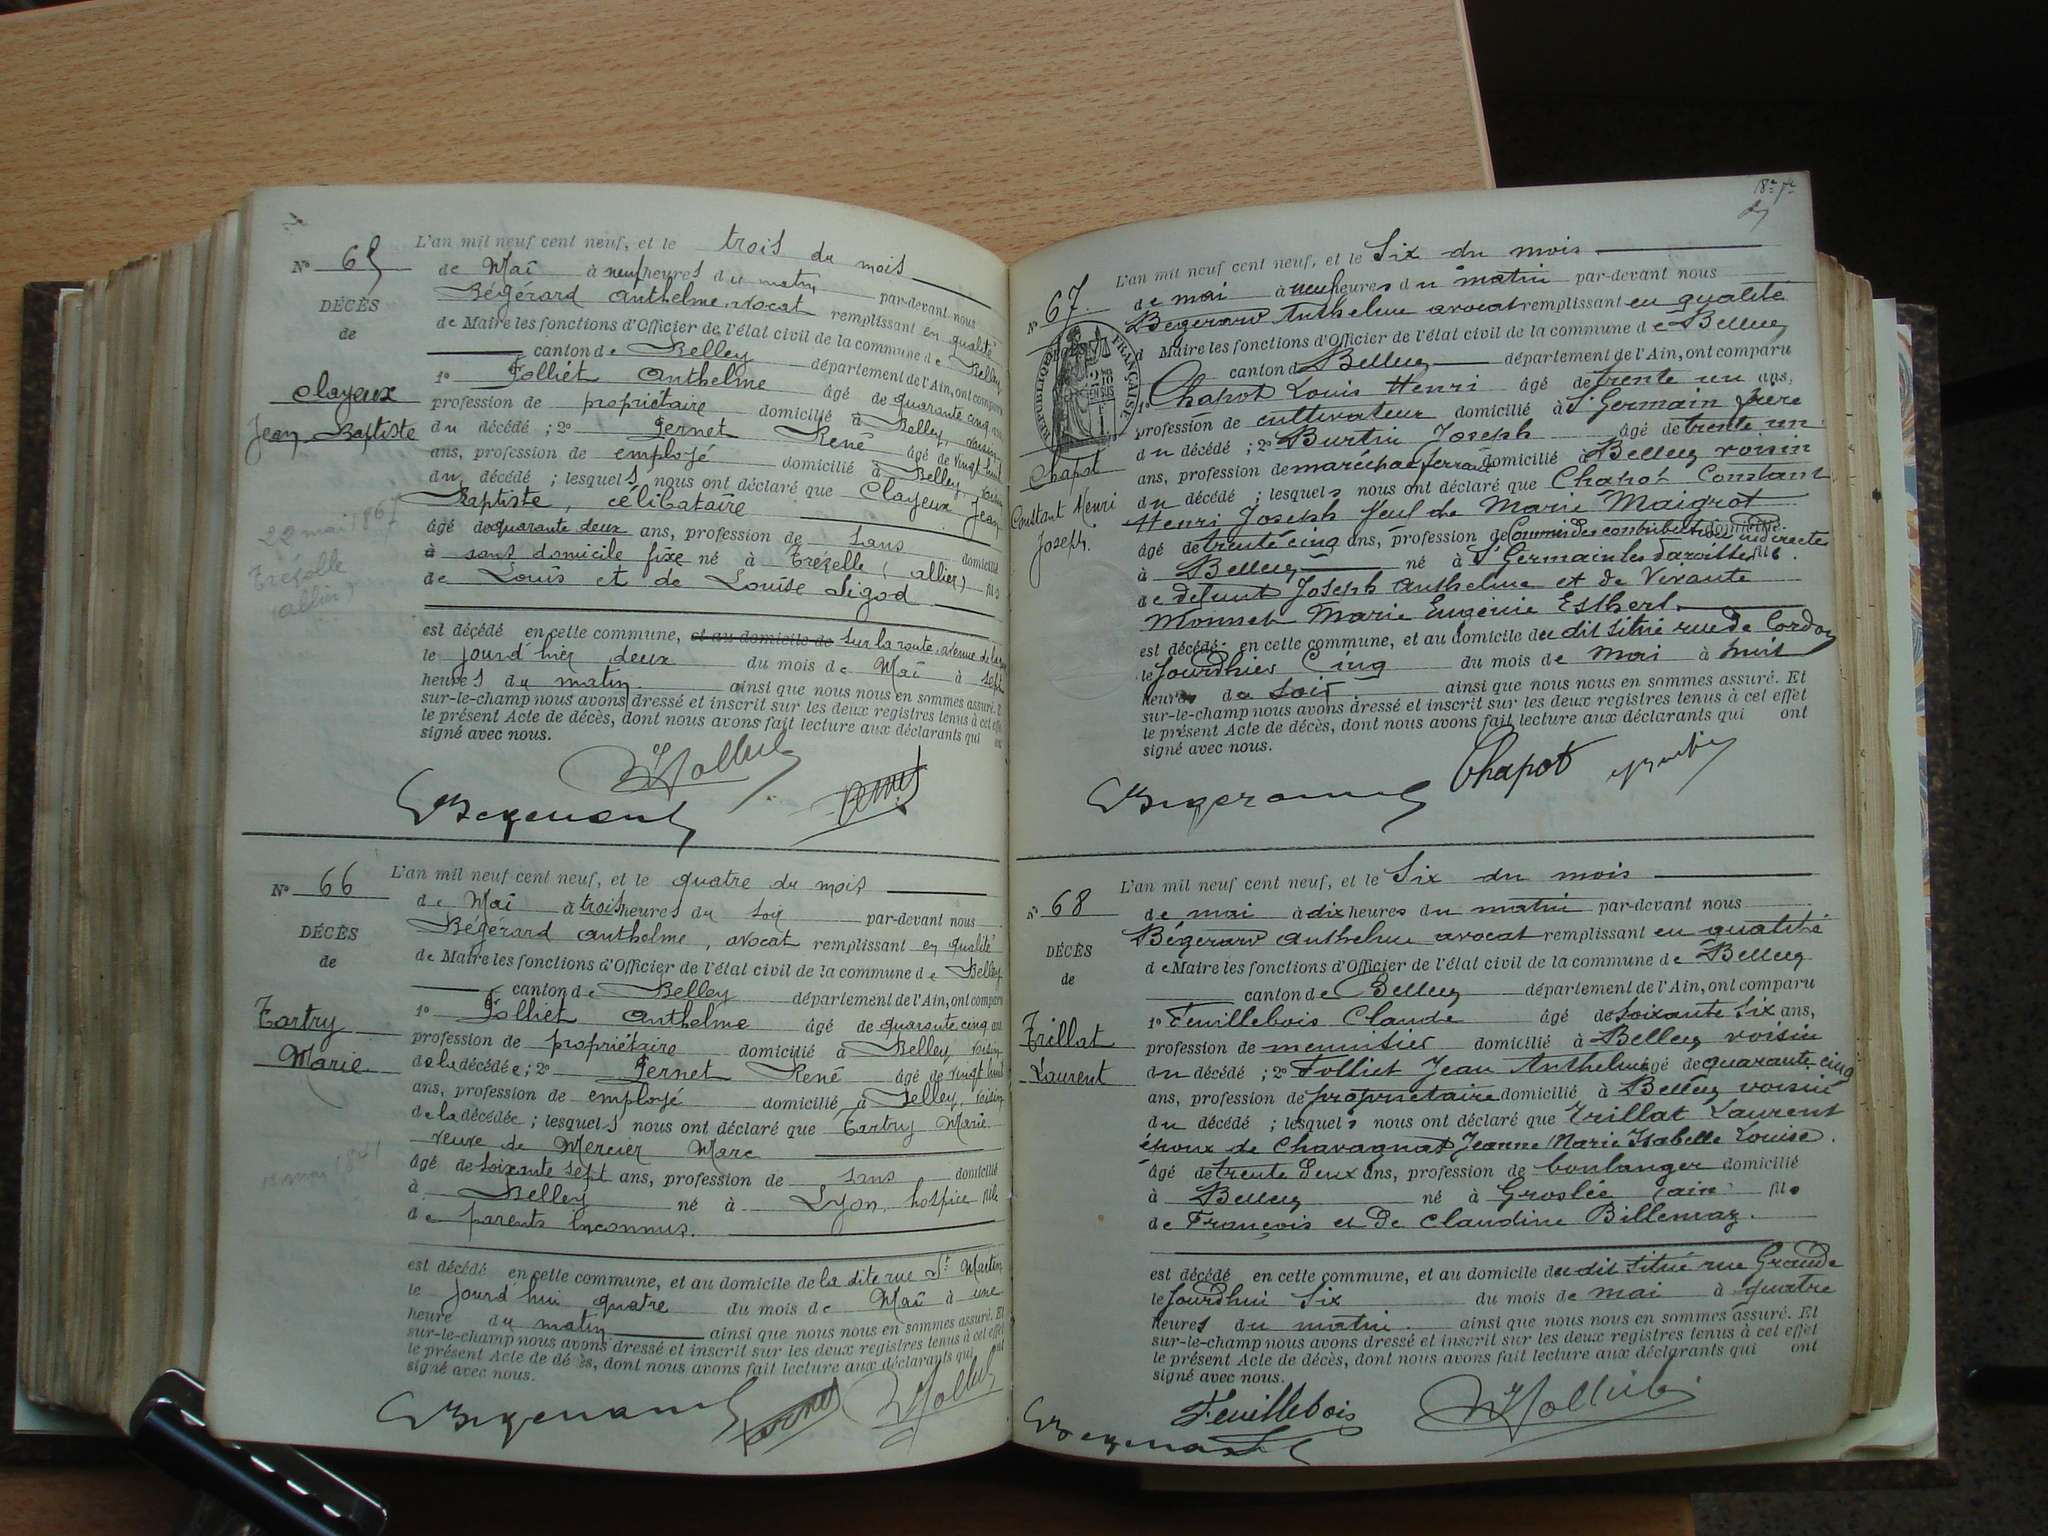 Nº 65
DÉCÈS
de
Clayeux
Jean Baptiste
22 mai 1867
Trézelle
(allier)
L'an mil neuf cent neuf, et le trois du mois
de Maî à neuf heures du matin par-devant nous
Bégérard Anthelme, avocat remplissant en qualité
de Maire les fonctions d'Officier de l'état civil de la commune de Belley
canton de Belley département de l'Ain, ont comparu
1º Folliet Anthelme âgé de quarante cinq ans
profession de propriétaire domicilié à Belley, voisin
du décédé ; 2º Pernet René âgé de vingt huit
ans, profession de employé domicilié à Belley, voisin
du décédé ; lesquels nous ont déclaré que Clayeux Jean
Baptiste, célibataire
âgé de quarante deux ans, profession de sans domicilié
à sans domicile fixe né à Trézelle (allier) fils
de Louîs et de Louîse Ligod
est décédé en cette commune, et au domicile de sur la route, avenue de la
le jourd'hier deux du mois de Maî à sept
heures du matin ainsi que nous nous en sommes assuré. Et
sur-le-champ nous avons dressé et inscrit sur les deux registres tenus à cet effet
le présent Acte de décès, dont nous avons fait lecture aux déclarants qui ont
signé avec nous.
Nº 66
DÉCÈS
de
Tartry
Marie
L'an mil neuf cent neuf, et le quatre du mois
de Maî à trois heures du soir par-devant nous
Bégérard Anthelme, avocat remplissant en qualité
de Maire les fonctions d'Officier de l'état civil de la commune de Belley
canton de Belley département de l'Ain, ont comparu
1º Folliet Anthelme âgé de quarante cinq ans
profession de propriétaire domicilié à Belley, voisin
de la décédée ; 2º Pernet René âgé de vingt huit
ans, profession de employé domicilié à Belley, voisin
de la décédée ; lesquels nous ont déclaré que Tartry Marie
veuve de Mercier Marc
âgé de soixante sept ans, profession de sans domicilié
à Belley né à Lyon, hospice fille
de parents inconnus.
est décédé en cette commune, et au domicile de la dite rue St Martin
le jourd'hui quatre du mois de Maî à une
heure du matin ainsi que nous nous en sommes assuré. Et
sur-le-champ nous avons dressé et inscrit sur les deux registres tenus à cet effet
le présent Acte de décès, dont nous avons fait lecture aux déclarants qui ont
signé avec nous.
Nº 67
RÉPUBLIQUE FRANÇAISE
Chapot
Constant Henri
Joseph.
L'an mil neuf cent neuf, et le Six du mois
de mai à neuf heures du matin par-devant nous
Bégerard Anthelme avocat remplissant en qualité
d Maire les fonctions d'Officier de l'état civil de la commune de Belley
canton de Belley département de l'Ain, ont comparu
1º Chapot Louis Henri âgé de trente un ans,
profession de cultivateur domicilié à St Germain frère
du décédé ; 2º Burtin Joseph âgé de trente un
ans, profession de maréchal ferrant domicilié à Belley voisin
du décédé ; lesquels nous ont déclaré que Chapot Constant
Henri Joseph veuf de Marie Maigrot
âgé de trente cinq ans, profession de Commis des contributions indirectes domicilié
à Belley né à St Germain les Paroisses fils
de défunt Joseph Anthelme et de Vivante
Monnet Marie Eugénie Esther
est décédé en cette commune, et au domicile du dit situé rue de Cordon
le Jourdhier Cinq du mois de mai à huit
heures du soir ainsi que nous nous en sommes assuré. Et
sur-le-champ nous avons dressé et inscrit sur les deux registres tenus à cet effet
le présent Acte de décès, dont nous avons fait lecture aux déclarants qui ont
signé avec nous.
Chapot
Nº 68
DÉCÈS
de
Trillat
Laurent
L'an mil neuf cent neuf, et le Six du mois
de mai à dix heures du matin par-devant nous
Bégerard Anthelme avocat remplissant en qualité
de Maire les fonctions d'Officier de l'état civil de la commune de Belley
canton de Belley département de l'Ain, ont comparu
1º Feuillebois Claude âgé de soixante six ans,
profession de menuisier domicilié à Belley voisin
du décédé ; 2º Folliet Jean Anthelme âgé de quarante cinq
ans, profession de propriétaire domicilié à Belley voisin
du décédé ; lesquels nous ont déclaré que Trillat Laurent
époux de Chavagnat Jeanne Marie Isabelle Louise.
âgé de trente deux ans, profession de boulanger domicilié
à Belley né à Groslée (ain) fils
de François et de Claudine Billemaz.
est décédé en cette commune, et au domicile du dit situé rue Grande
le Jourdhui Six du mois de mai à quatre
heures du matin. ainsi que nous nous en sommes assuré. Et
sur-le-champ nous avons dressé et inscrit sur les deux registres tenus à cet effet
le présent Acte de décès, dont nous avons fait lecture aux déclarants qui ont
signé avec nous.
Feuillebois